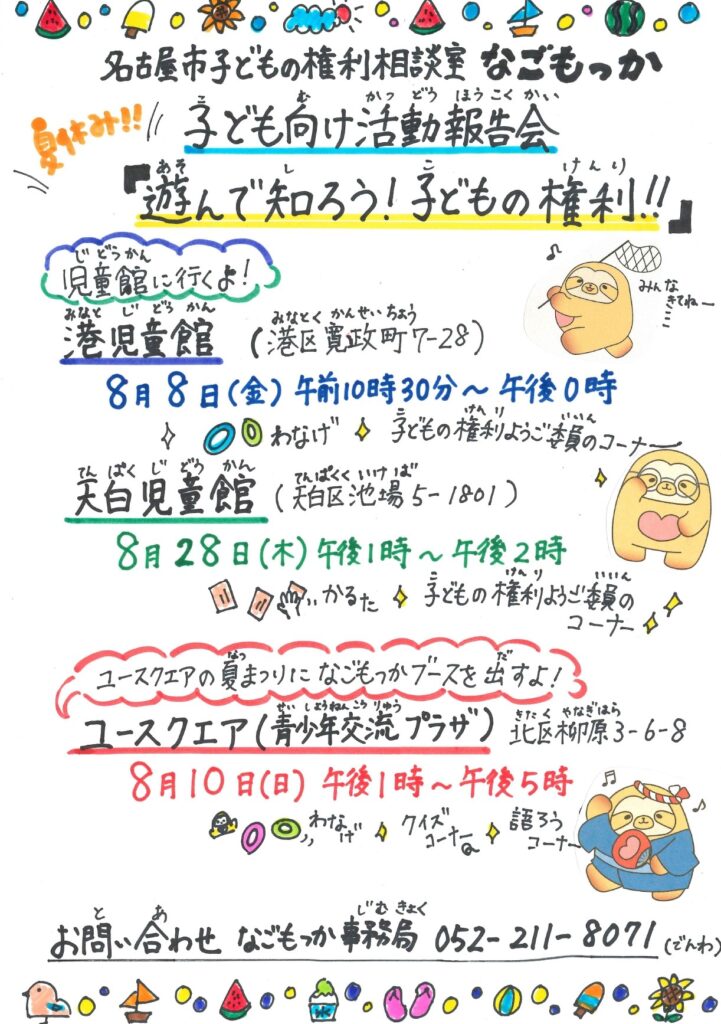 名古屋市子どもの権利相談室 なごもっか
夏休み!!
子ども向け活動報告会
『遊んで知ろう!子どもの権利!!』
児童館に行くよ!
みんな
きてねー
港児童館 (港区寛政町7-28)
8月8日(金)午前10時30分~午後0時
わなげ 子どもの権利ようご委員のコーナー
天白児童館 (天白区池場5-1801)
8月28日(木)午後1時~午後2時
かるた 子どもの権利ようご委員の
コーナー
ユースクエアの夏まつりになごもっかブースを出すよ!
ユースクエア(青少年交流プラザ) 北区柳原3-6-8
8月10日(日)午後1時~午後5時
わなげ クイズ
コーナー 語ろう
コーナー
お問い合わせ なごもっか事務局 052-211-8071(でんわ)
氷